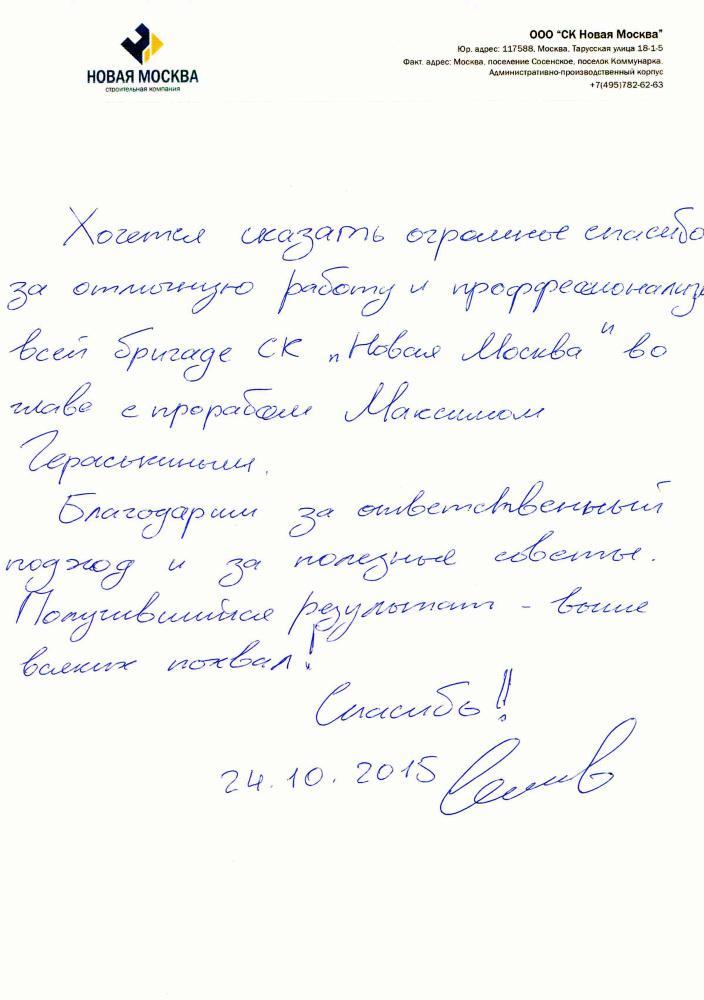 НОВАЯ МОСКВА
строительная компания
ООО "СК Новая Москва"
Юр. адрес: 117588, Москва, Тарусская улица 18-1-5
Факт. адрес: Москва, поселение Сосенское, поселок Коммунарка.
Административно-производственный корпус
+7(495)782-62-63
Хочется сказать огромное спасибо
за отличную работу и проффесионализм
всей бригаде СК „Новая Москва" во
главе с прорабом Максимом
Гераськиным.
Благодарим за ответственный
подход и за полезные советы.
Получившийся результат - выше
всяких похвал!
Спасибо!!
24.10.2015